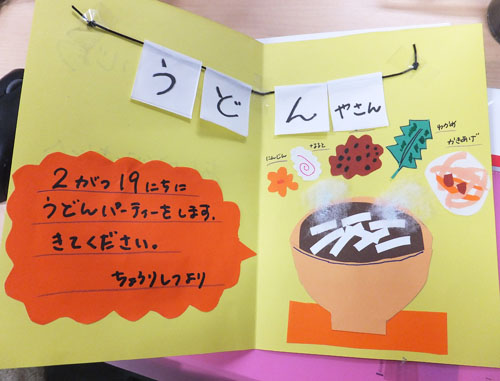 うどんやさん
2がつ19にちに
うどんパーティーをします.
きてください。
ちょうりしつより
にんじん
なると
かきあげ